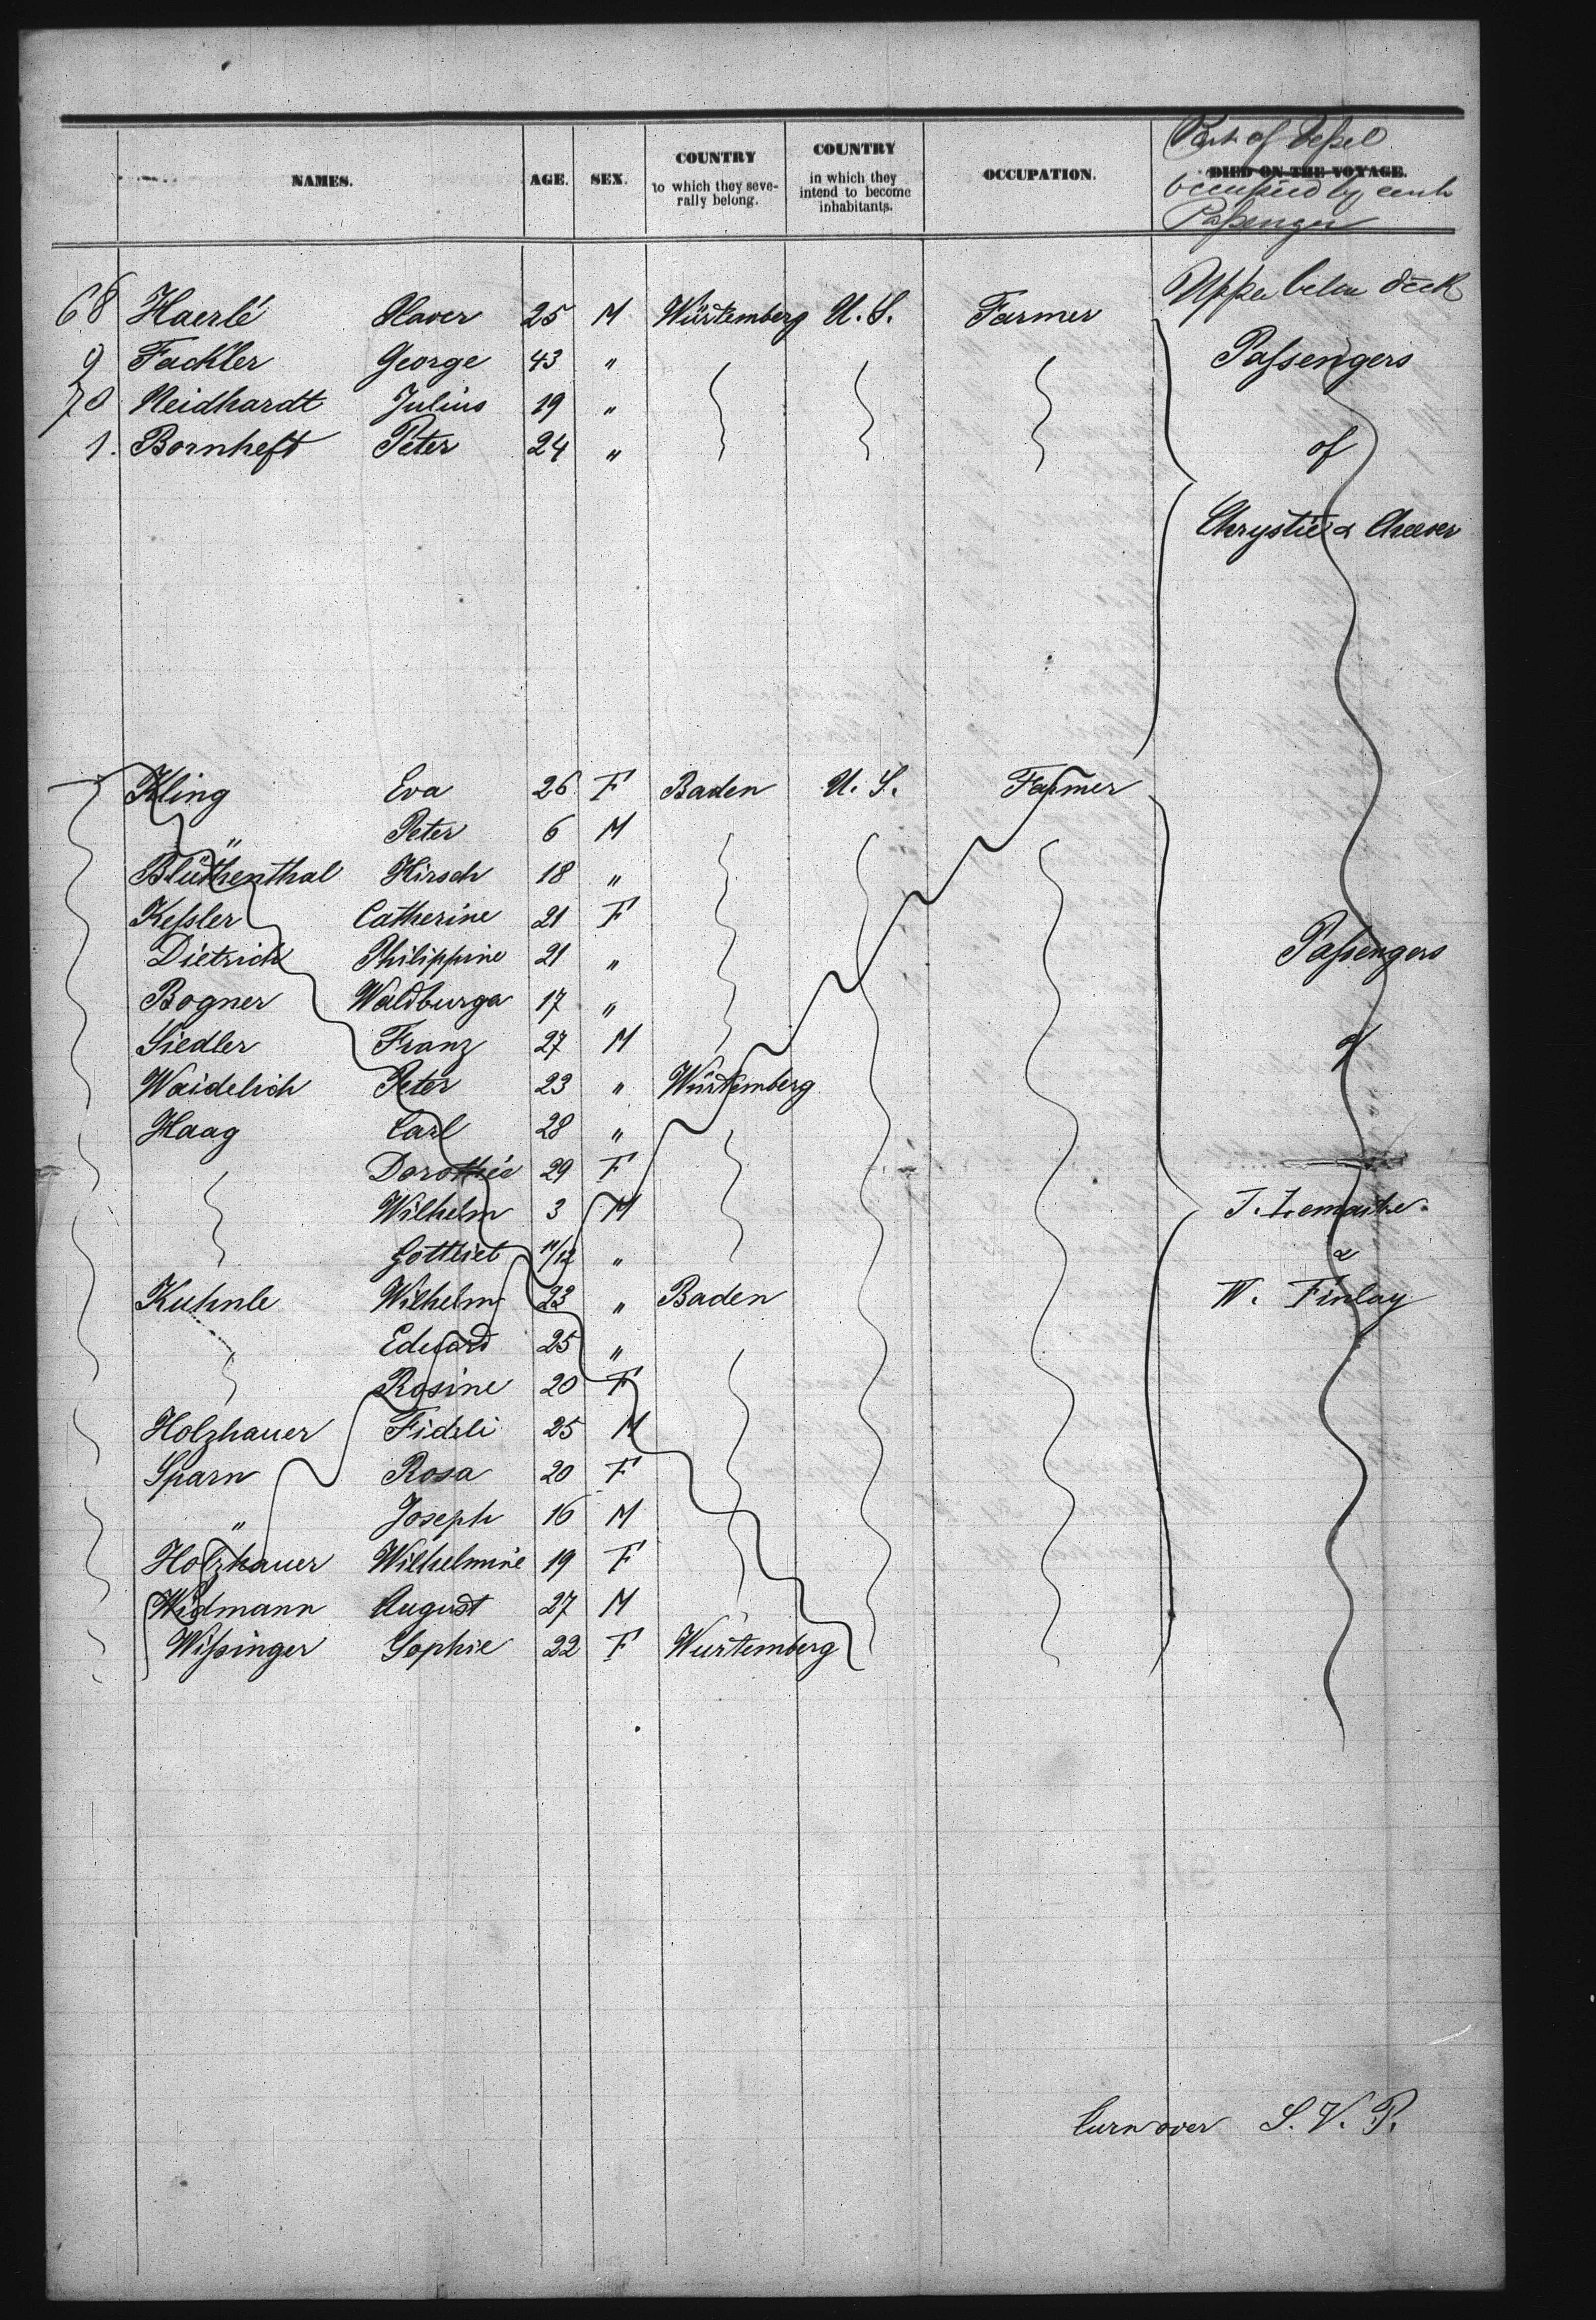 Part of Vessel
NAMES. AGE. SEX. COUNTRY to which they severally belong. COUNTRY in which they intend to become inhabitants. OCCUPATION. DIED ON THE VOYAGE.
occupied by each
Passenger
Upper below deck
68 Haerlé Xaver 25 M Würtemberg U. S. Farmer
9 Fackler George 43 " Passengers
70 Neidhardt Julius 19 "
1. Bornheft Peter 24 " of
Chrystie & Cheever
Kling Eva 26 F Baden U. S. Farmer
" Peter 6 M
Blüthenthal Hirsch 18 "
Kessler Catherine 21 F
Dietrich Philippine 21 " Passengers
Bogner Waldburga 17 "
Siedler Franz 27 M of
Waidelich Peter 23 " Würtemberg
Haag Carl 28 "
Dorothée 29 F
Wilhelm 3 M J. Lemaitre
Gottlieb 11/12 " &
Kuhnle Wilhelm 23 " Baden W. Finlay
Eduard 25 "
Rosine 20 F
Holzhauer Fideli 25 M
Sparn Rosa 20 F
" Joseph 16 M
Holzhauer Wilhelmine 19 F
Widmann August 27 M
Wissinger Sophie 22 F Wurtemberg
turn over S. V. P.